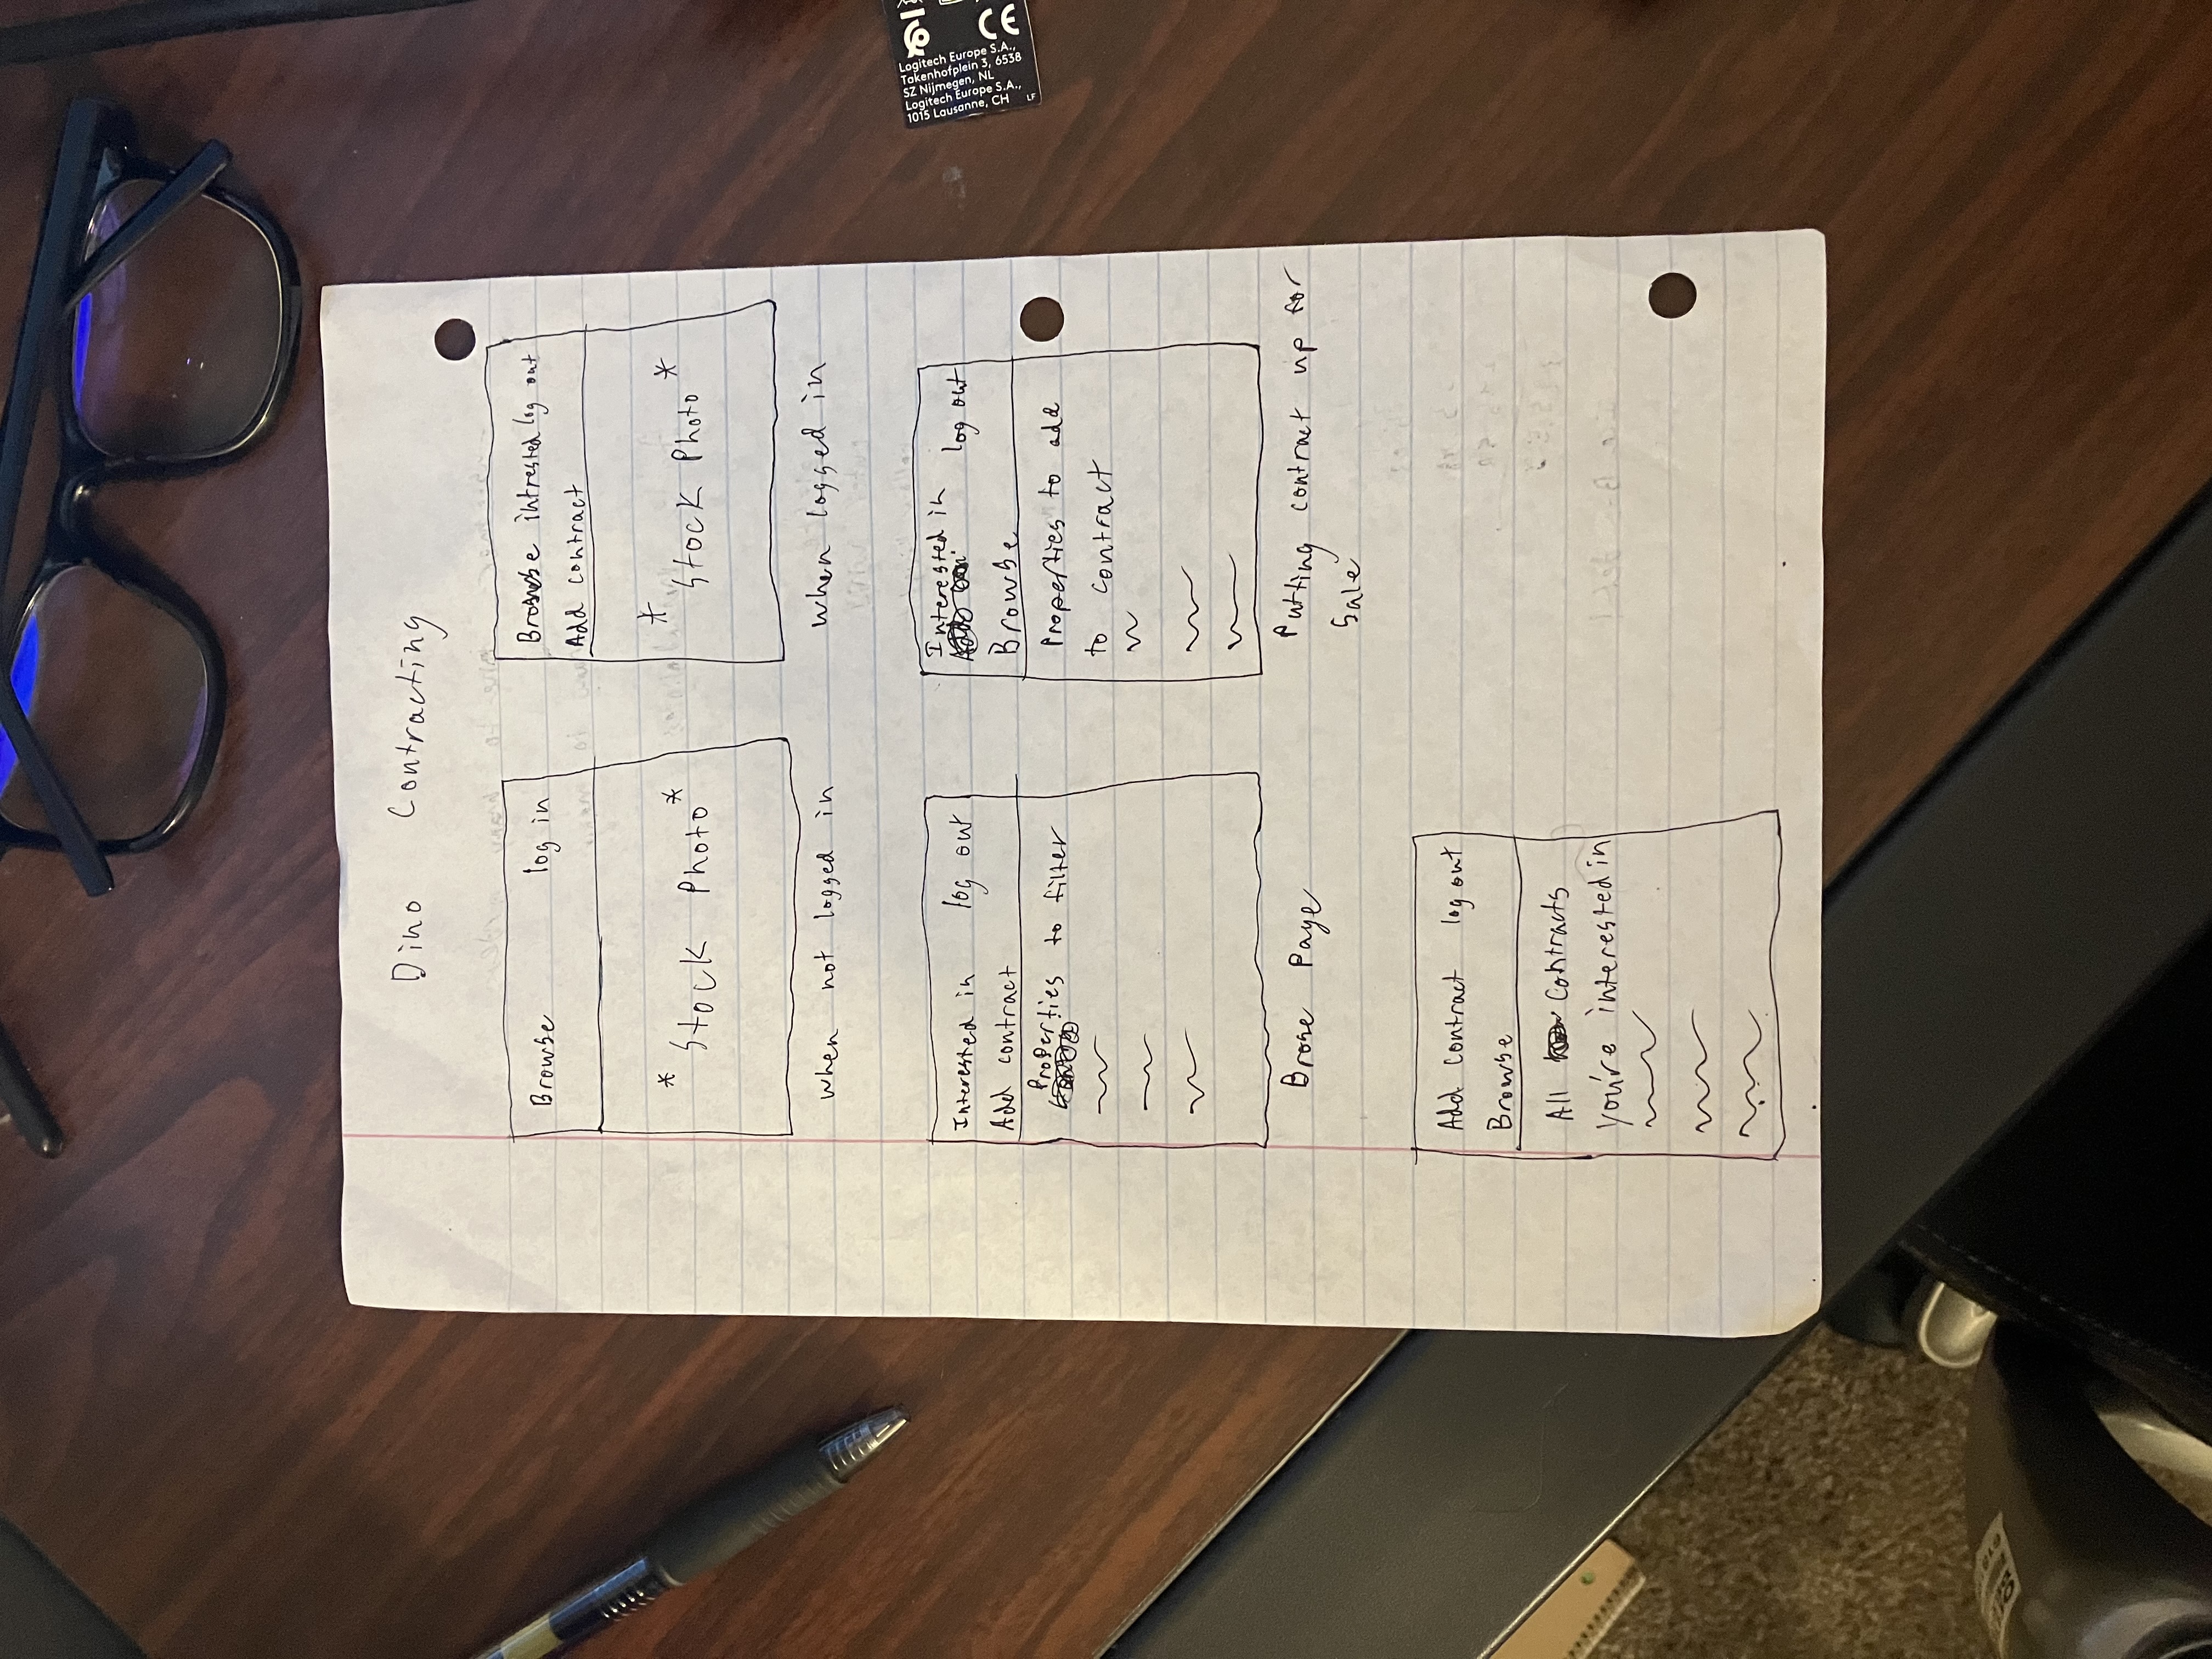 Dino Contracting
Browse log in
* Stock Photo *
when not logged in
Browse intrested log out
Add contract
* Stock Photo *
when logged in
Interested in log out
Add contract
Properties to filter
Brose Page
Interested in
log out
Browse
Properties to add
to contract
Putting contract up for
Sale
Add contract log out
Browse
All Contracts
you're interested in
Logitech Europe S.A.,
Takenhofplein 3, 6538
SZ Nijmegen, NL
Logitech Europe S.A.,
1015 Lausanne, CH
LF
CE